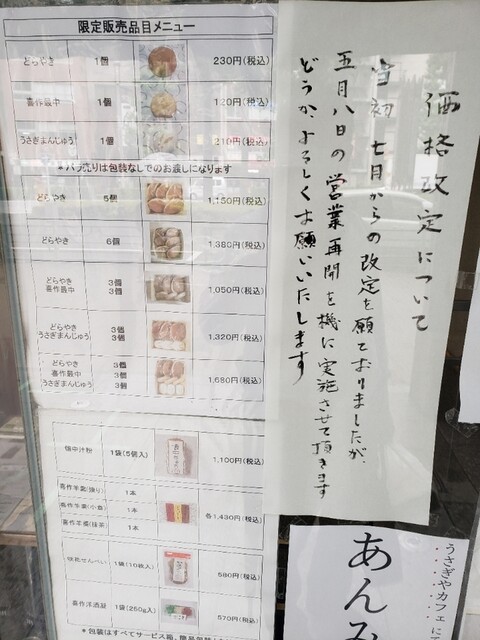 限定販売品目メニュー
どらやき 1個 230円(税込)
喜作最中 1個 120円(税込)
うさぎまんじゅう 1個 210円(税込)
*バラ売りは包装なしでのお渡しになります
どらやき 5個 1,150円(税込)
どらやき 6個 1,380円(税込)
どらやき 3個
喜作最中 3個 1,050円(税込)
どらやき 3個
うさぎまんじゅう 3個 1,320円(税込)
どらやき 3個
喜作最中 3個
うさぎまんじゅう 3個 1,680円(税込)
懐中汁粉 1袋(5個入) 1,100円(税込)
喜作羊羹(煉り) 1本
喜作羊羹(小倉) 1本 各1,430円(税込)
喜作羊羹(抹茶) 1本
1袋(10枚入) 580円(税込)
喜作洋酒凝 1袋(250g入) 570円(税込)
*包装はすべてサービス箱、簡易包装
価格改定について
当初 七月からの改定を願ておりましたが、
五月八日の営業再開を機に実施させて頂きます
どうか、よろしくお願いいたします
うさぎやカフェに
あんみ